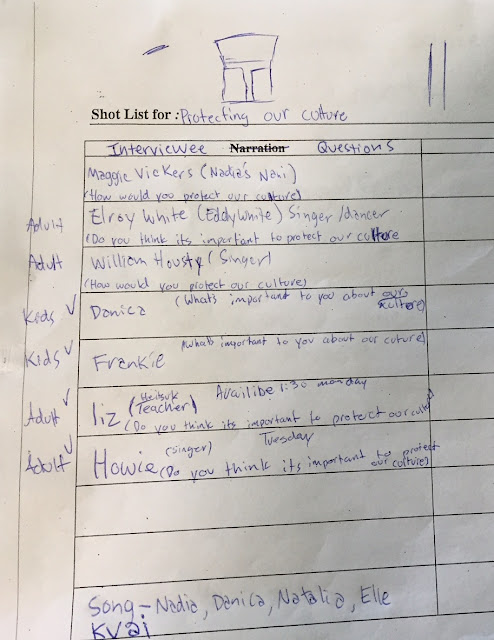 Shot List for : Protecting our culture
Interviewee Narration Questions
Maggie Vickers (Nadia's Nani)
(How would you protect our culture)
Adult Elroy White (Eddy White) Singer/dancer
(Do you think its important to protect our culture
Adult William Housty (Singer)
(How would you protect our culture)
Kids ✓ Danica (What's important to you about our culture)
Kids ✓ Frankie (whats important to you about our cuture)
Adult ✓ liz (Heiltsuk Teacher) Availibe 1:30 monday
(Do you think its important to protect our culture)
Adult ✓ Howie (singer) Tuesday
(Do you think its important to protect our culture)
Song - Nadia, Danica, Natalia, Elle
KVai